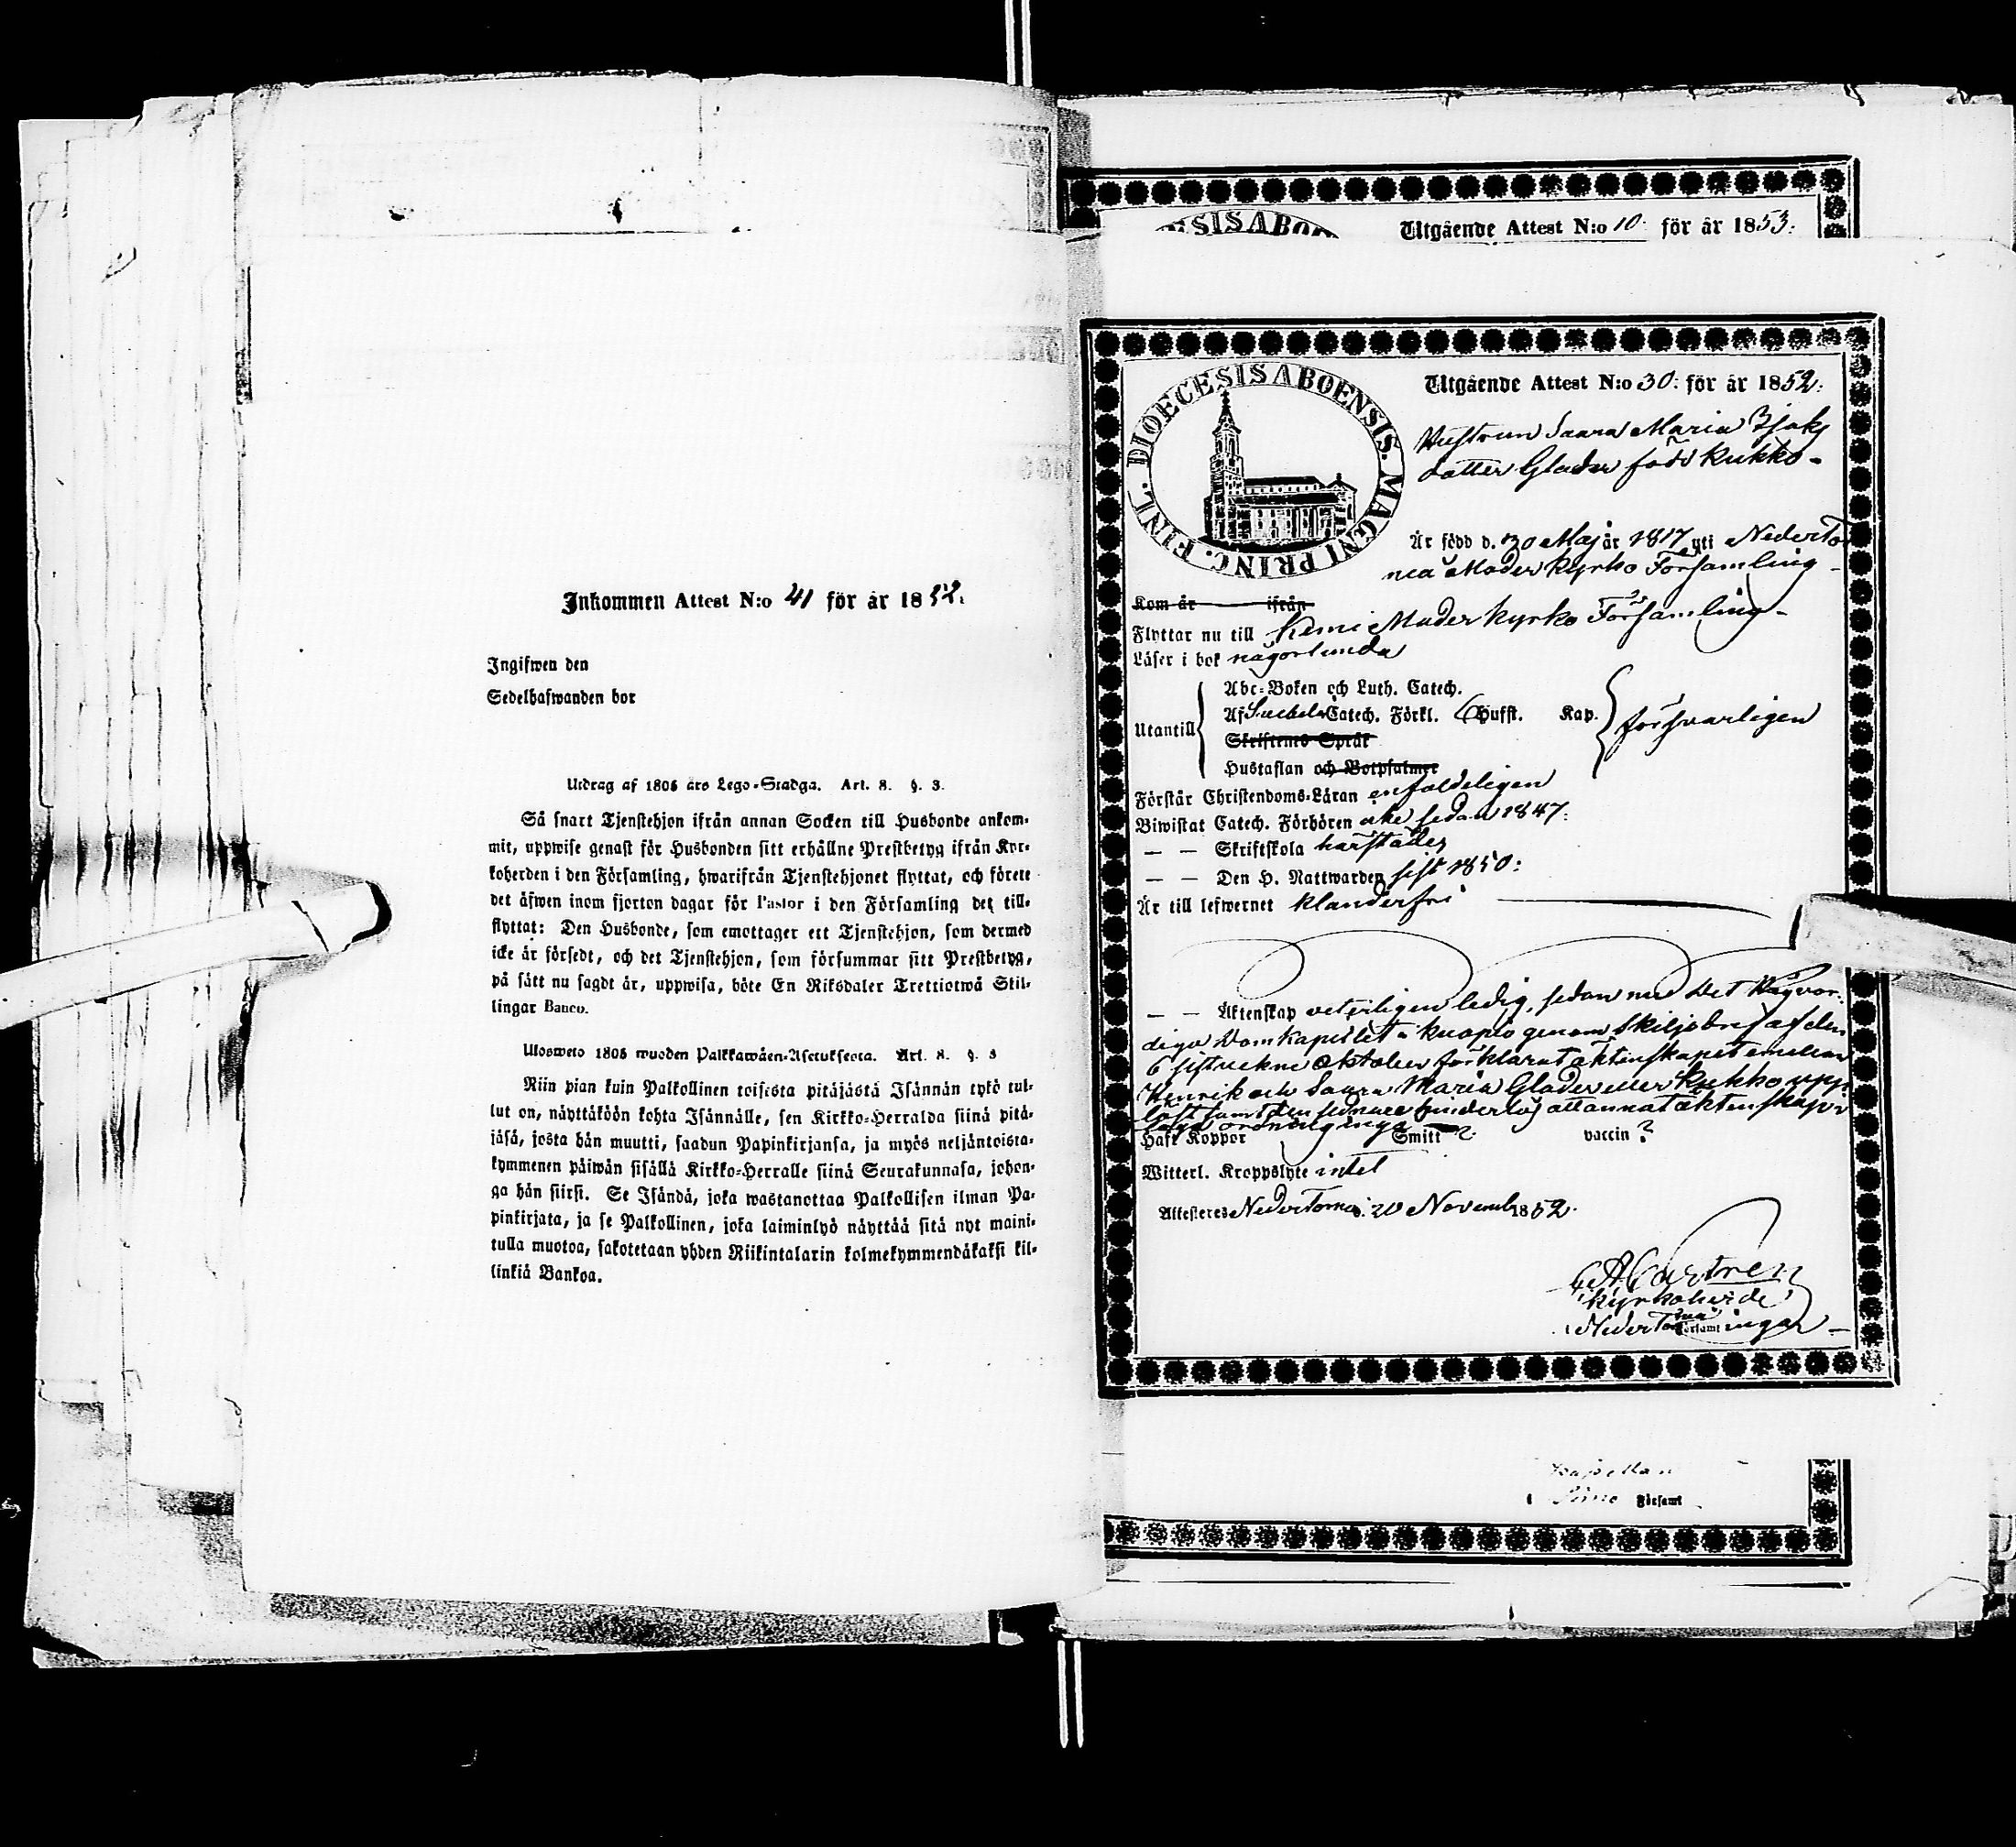 Inkommen Attest N:o 41 för år 1852.
Ingifwen den
Sedelhafwanden bor
Utdrag af 1805 års Lego-Stadga. Art. 8. §. 3.
Så snart Tjenstehjon ifrån annan Socken till Husbonde ankom-
mit, uppwise genast för Husbonden sitt erhållne Prestbetyg ifrån Kyr-
koherden i den Församling, hwarifrån Tjenstehjonet flyttat, och förete
det äfwen inom fjorton dagar för Pastor i den Församling det till-
flyttat: Den Husbonde, som emottager ett Tjenstehjon, som dermed
icke är försedt, och det Tjenstehjon, som försummar sitt Prestbetyg,
på sätt nu sagdt är, uppwisa, böte En Riksdaler Trettiotwå Skil-
lingar Banco.
Ulosweto 1805 wuoden Palkkawäen-Asetuksesta. Art. 8. §. 3
Niin pian kuin Palkollinen toisesta pitäjästä Isännän tykö tul-
lut on, näyttäköön kohta Isännälle, sen Kirkko-Herralda siinä pitä-
jäsä, josta hän muutti, saadun Papinkirjansa, ja myös neljäntoista-
kymmenen päiwän sisällä Kirkko-Herralle siinä Seurakunnasa, johon-
ga hän siirsi. Se Isändä, joka wastanottaa Palkollisen ilman Pa-
pinkirjata, ja se Palkollinen, joka laiminlyö näyttää sitä nyt maini-
tulla muotoa, sakotetaan yhden Riikintalarin kolmekymmendäkaksi kil-
linkiä Bankoa.
Utgående Attest N:o 10. för år 1853.
DIOECESIS ABOENSIS. MAGNI PRINC. FINL.
Utgående Attest N:o 30: för år 1852.
Hustrun Saara Maria Isaks
dotter Glader född Kukko-
Är född d. 30 Maj år 1817 uti Nederto
neå Moder kyrko Församling-
Kom år ifrån
Flyttar nu till Kemi Moder kyrko Församling-
Läser i bok någorlunda
Abc-Boken och Luth. Catech.
Af Catech. Förkl. Hufst. Kap.
Utantill försvarligen
Skriftens Språk
Hustaflan och Botpsalmer
Förstår Christendoms-Läran enfaldeligen
Biwistat Catech. Förhören icke sedan 1847:
— — Skriftskola härstädes
— — Den H. Nattwarden sist 1850:
Är till lefwernet klanderfri
— — Äktenskap veterligen ledig, sedan nu Det Högvör-
diga Domkapitlet i Kuopio genom skiljobref af den
6 sistvekne Oktober förklarat äktenskapet emellan
Henrik och Saara Maria Glader eller Kukko upp-
löst samt den sednare att annat äktenskap i
laga ordning ingå
Haft Koppor Smitt ? vaccin ?
Witterl. Kroppslyte intet
Attesteres Neder Torneå d. 20 Novemb 1852.
Castren
Kyrkoherde
Neder Torneå Församl ingar
Kapellan
Församl